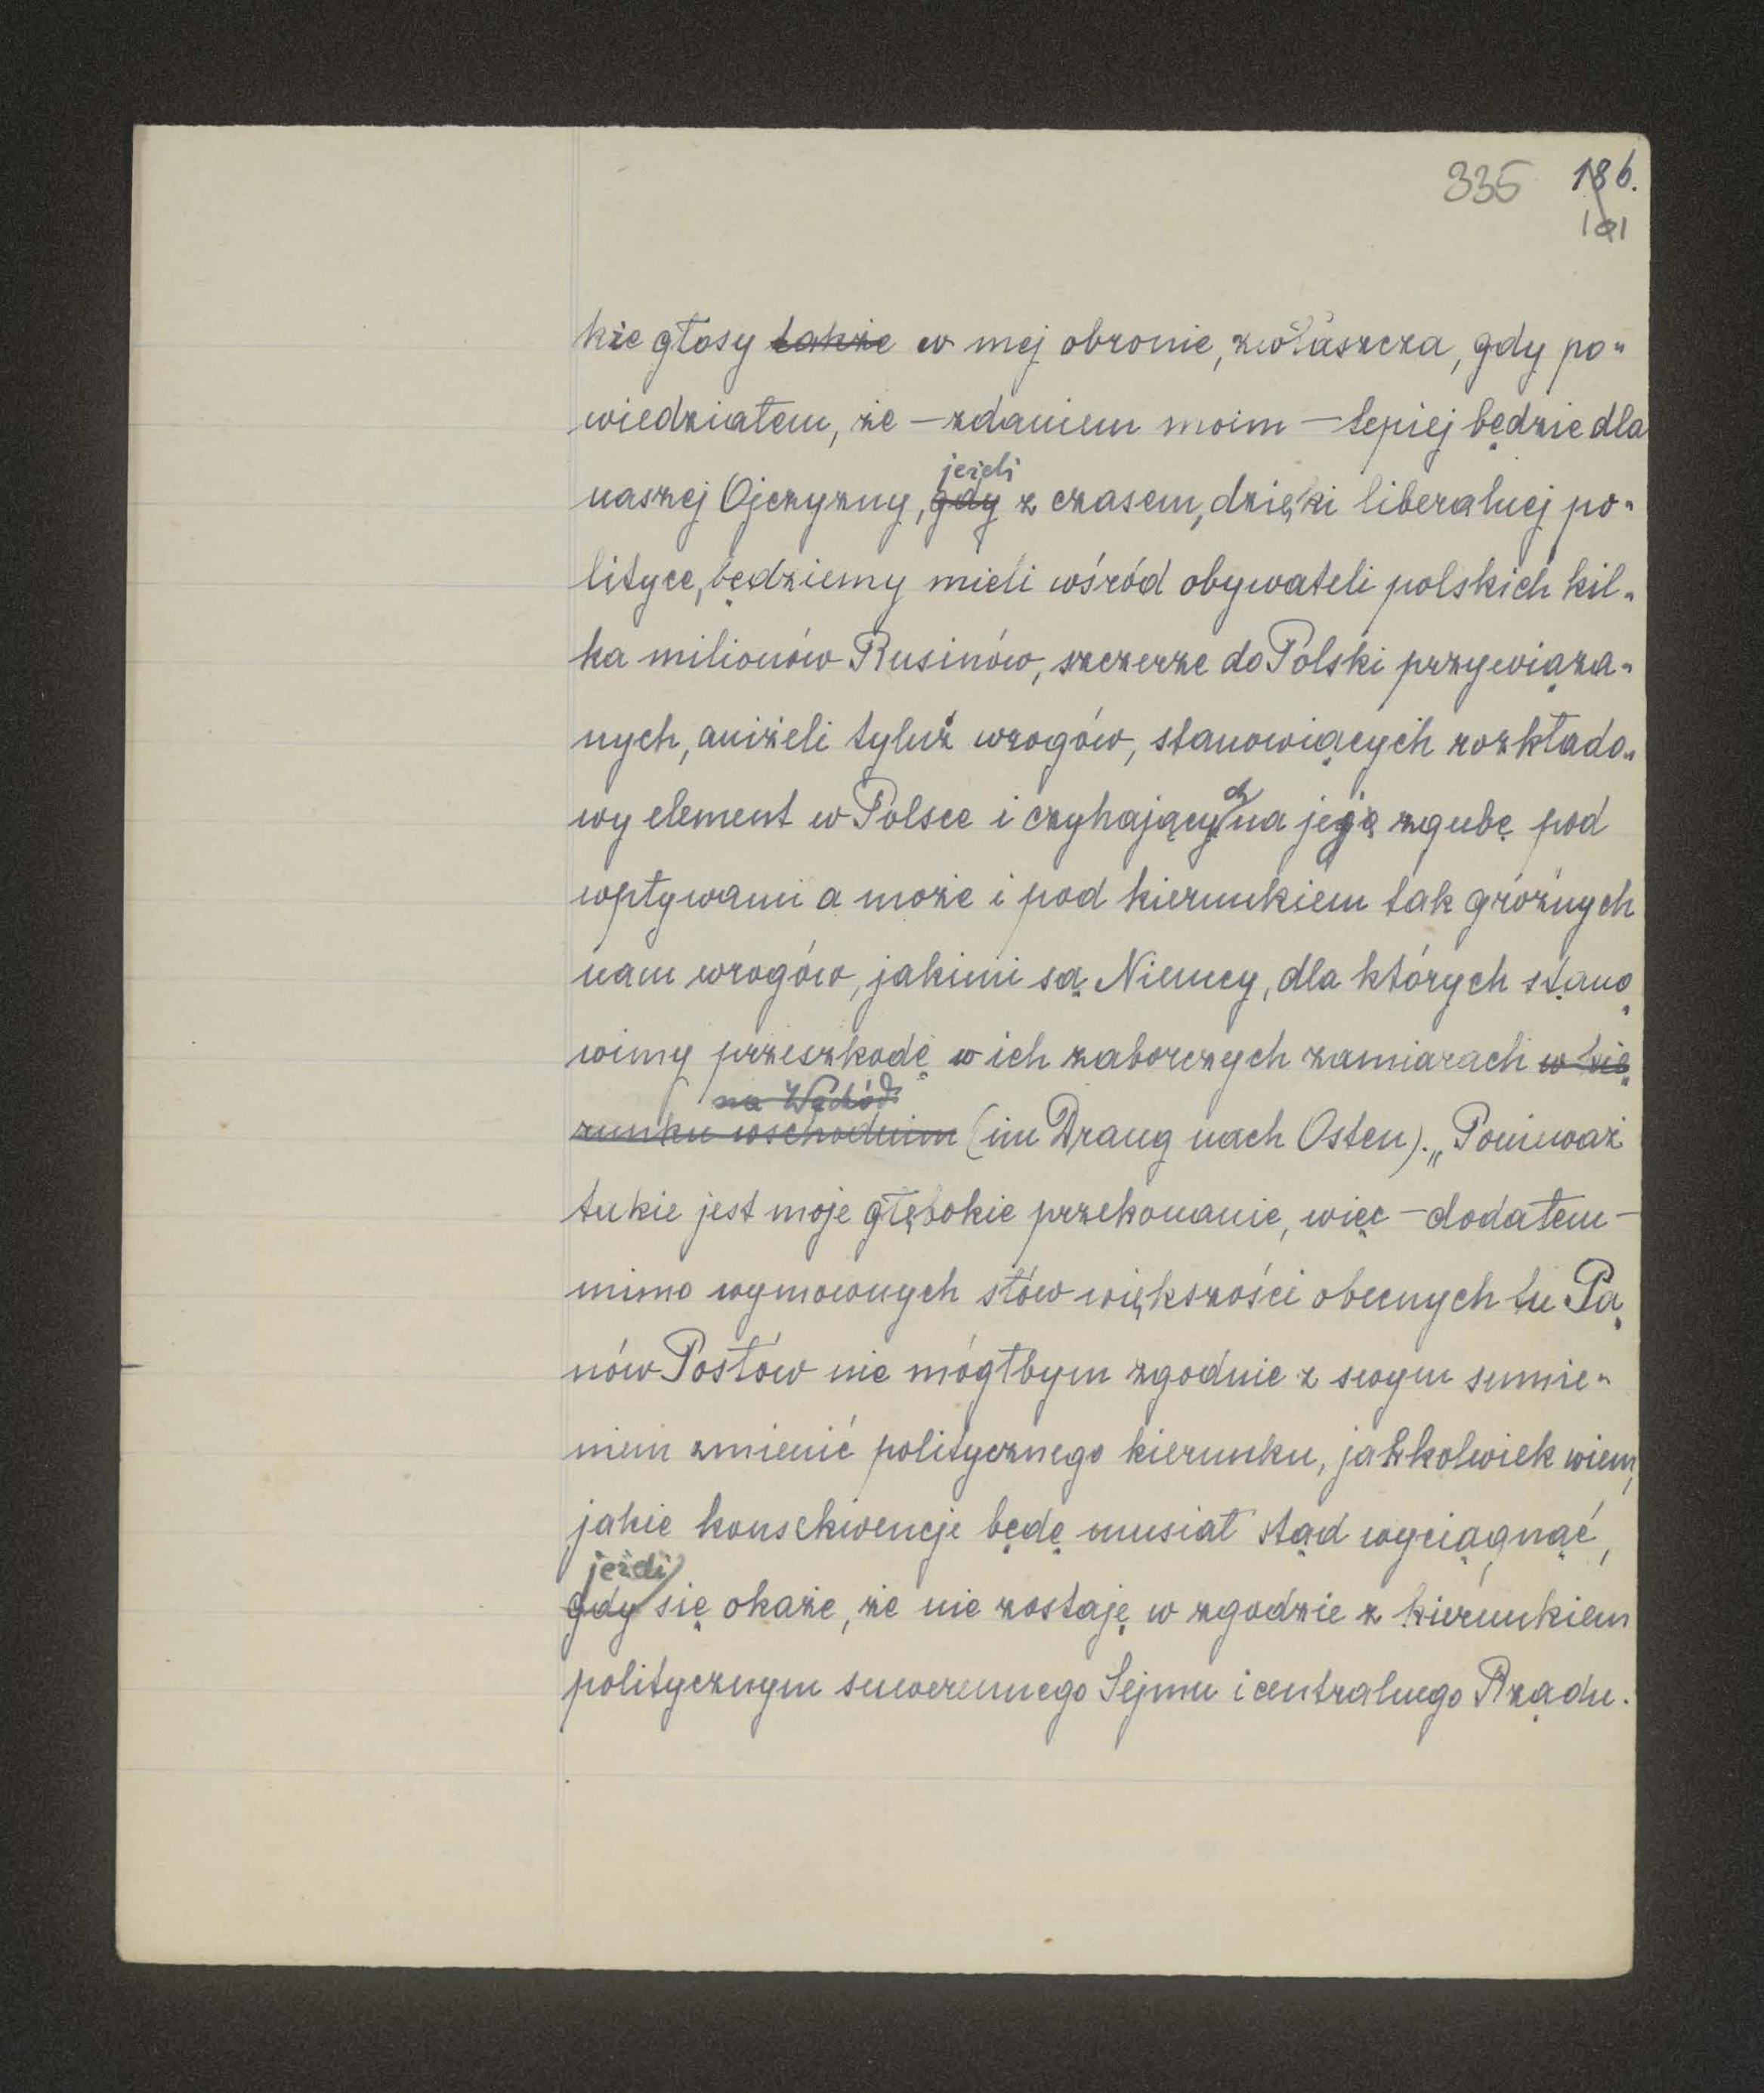 335 186.
191
kie głosy także w mej obronie, zwłaszcza, gdy po„
wiedziałem, że – zdaniem moim – lepiej będzie dla
jeżeli
naszej Ojczyzny, gdy z czasem, dzięki liberalnej po„
lityce, będziemy mieli wśród obywateli polskich kil„
ka milionów Rusinów, szczerze do Polski przywiąza„
nych, aniżeli tyluż wrogów, stanowiących rozkłado„
ch
wy element w Polsce i czyhający na jej zgubę pod
wpływami a może i pod kierunkiem tak groźnych
nam wrogów, jakimi są Niemcy, dla których stano„
wimy przeszkodę w ich zaborczych zamiarach w kie„
na Wschód
runku wschodnim (im Drang nach Osten). „Ponieważ
takie jest moje głębokie przekonanie, więc – dodałem –
mimo wymownych słów większości obecnych tu Pa„
nów Posłów nie mógłbym zgodnie z swym sumie„
niem zmienić politycznego kierunku, jakkolwiek wiem,
jakie konsekwencje będę musiał stąd wyciągnąć,
jeżeli
gdy się okaże, że nie zostaję w zgodzie z kierunkiem
politycznym suwerennego Sejmu i centralnego Rządu.